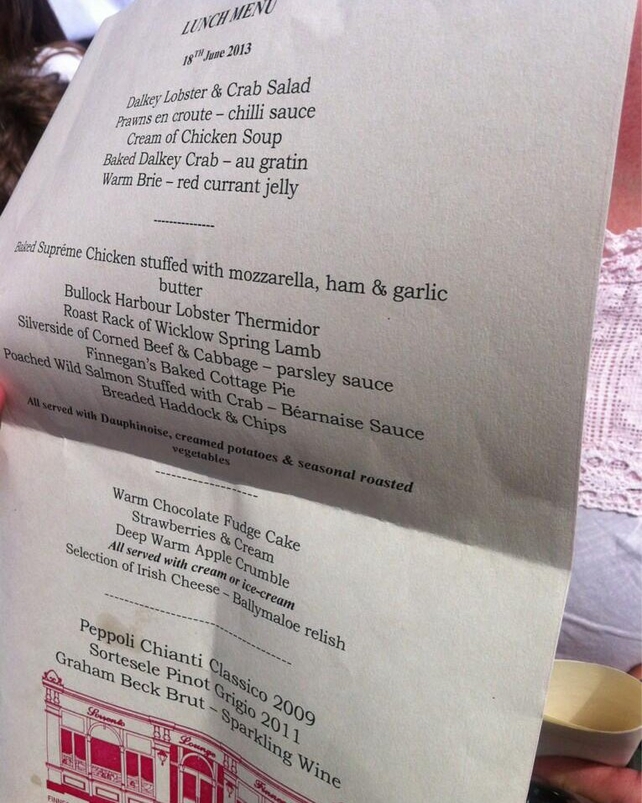 LUNCH MENU
18TH June 2013
Dalkey Lobster & Crab Salad
Prawns en croute – chilli sauce
Cream of Chicken Soup
Baked Dalkey Crab – au gratin
Warm Brie – red currant jelly
--------------
Baked Supréme Chicken stuffed with mozzarella, ham & garlic
butter
Bullock Harbour Lobster Thermidor
Roast Rack of Wicklow Spring Lamb
Silverside of Corned Beef & Cabbage – parsley sauce
Finnegan's Baked Cottage Pie
Poached Wild Salmon Stuffed with Crab – Béarnaise Sauce
Breaded Haddock & Chips
All served with Dauphinoise, creamed potatoes & seasonal roasted
vegetables
--------------------
Warm Chocolate Fudge Cake
Strawberries & Cream
Deep Warm Apple Crumble
All served with cream or ice-cream
Selection of Irish Cheese – Ballymaloe relish
------------------------------
Peppoli Chianti Classico 2009
Sortesele Pinot Grigio 2011
Graham Beck Brut – Sparkling Wine
Sorrento
Lounge